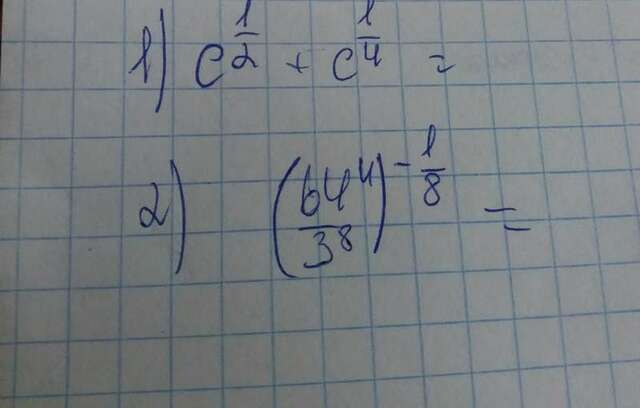 1) c^{\frac{1}{2}} + c^{\frac{1}{4}} =
2) \left(\frac{64^4}{3^8}\right)^{-\frac{1}{8}} =